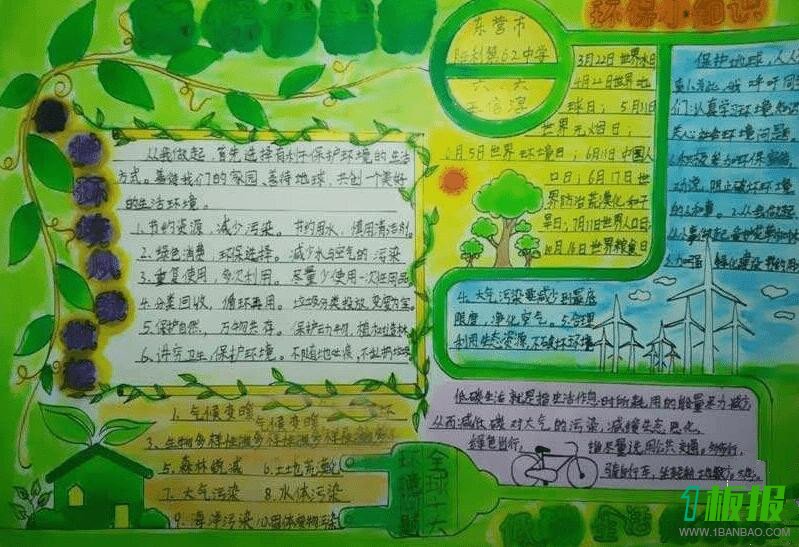 环保小知识
东营市
胜利第62中学
六、六
3月22日世界水日
4月22日世界地
球日；5月31日
世界无烟日；
6月5日世界环境日；6月11日中国人
口日；6月17日世
界防治荒漠化和干
旱日；7月11日世界人口日
10月16日世界粮食日
保护地球，人人
有责
我呼吁同
们：认真学习环境知识
关心社会环境问题，
动说，阻止破坏环境
从我做起，首先选择有利于保护环境的生活
方式。善待我们的家园、善待地球，共创一个美好
的生活环境。
1.节约资源，减少污染。节约用水，慎用清洁剂。
2.绿色消费，环保选择。减少水与空气的污染
3.重复使用，多次利用。尽量少使用一次性用品
4.分类回收，循环再用。垃圾分类投放，变废为宝
5.保护自然，万物共存。保护动物，植树造林
6.讲究卫生，保护环境。不随地吐痰，不乱扔垃圾
4.大气污染要减少到最底
限度，净化空气。5.合理
利用生态资源，不破坏环境
低碳生活就是指生活作息时所耗用的能量尽力减少
从而减低碳对大气的污染，减缓生态恶化。
绿色出行，
尽量选用公共交通，
骑自行车，
1.气候变暖
3.生物多样性减少
5.森林锐减 6.土地荒漠化
7.大气污染 8.水体污染
9.海洋污染 10.固体废物污染
全球十大
环境问题
低碳生活
1板报
WWW.1BANBAO.COM